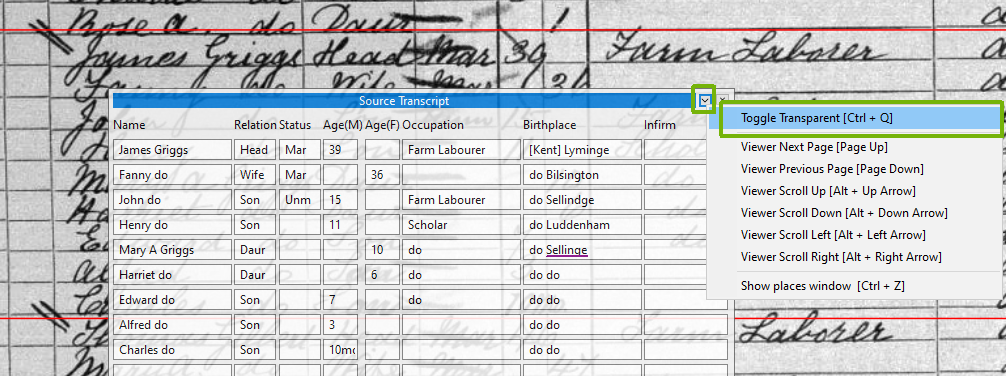 Rose A. do Daur 1
James Griggs Head Mar 39 Farm Laborer
Fanny do Wife Mar 36
Source Transcript
Toggle Transparent [Ctrl + Q]
Name Relation Status Age(M) Age(F) Occupation Birthplace Infirm
James Griggs Head Mar 39 Farm Labourer [Kent] Lyminge
Viewer Next Page [Page Up]
Fanny do Wife Mar 36 do Bilsington
Viewer Previous Page [Page Down]
John do Son Unm 15 Farm Labourer do Sellindge
Viewer Scroll Up [Alt + Up Arrow]
Henry do Son 11 Scholar do Luddenham
Viewer Scroll Down [Alt + Down Arrow]
Mary A Griggs Daur 10 do do Sellinge
Viewer Scroll Left [Alt + Left Arrow]
Harriet do Daur 6 do do do
Viewer Scroll Right [Alt + Right Arrow]
Edward do Son 7 do do do
Show places window [Ctrl + Z]
Alfred do Son 3 do do
Laborer
Charles do Son 10mo do do